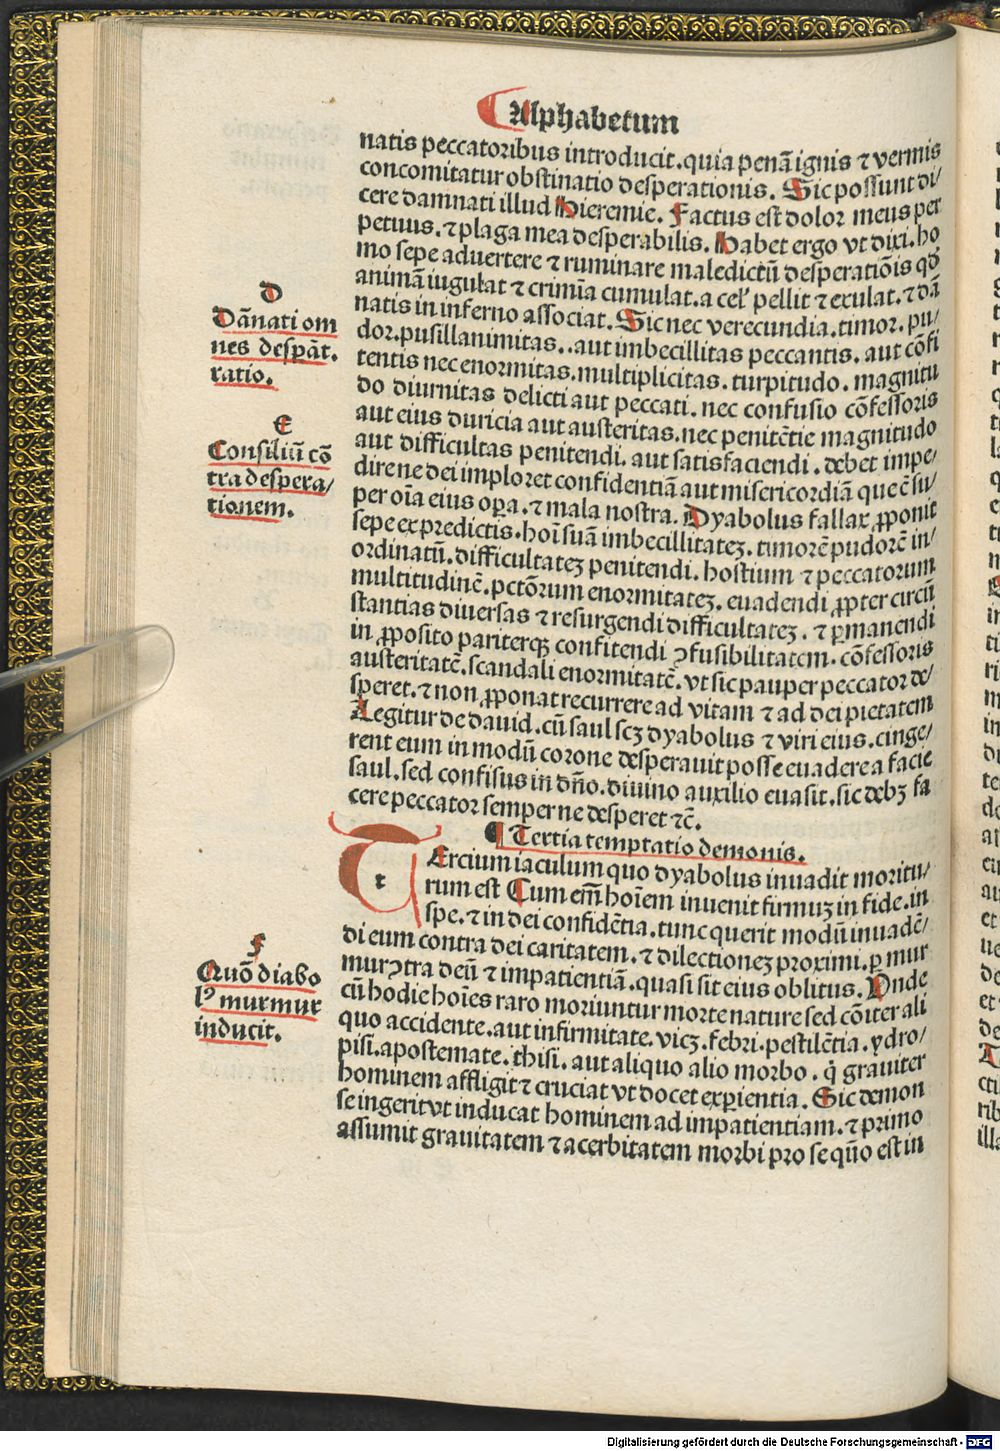 Alphabetum
natis peccatoribus introducit. quia penā ignis ⁊ vermis
concomitatur obstinatio desperationis. Sic possunt di/
cere damnati illud Hieremie. Factus est dolor meus per
petuus. ⁊ plaga mea desperabilis. Habet ergo vt dixi. ho
mo sepe aduertere ⁊ ruminare maledictū desperatiōis qđ
animā iugulat ⁊ crimīa cumulat. a cel' pellit ⁊ exulat. ⁊ dā
natis in inferno associat. Sic nec verecundia. timor. pu/
dor. pusillanimitas.. aut imbecillitas peccantis. aut cōfi
tentis nec enormitas. multiplicitas. turpitudo. magnitu
do diurnitas delicti aut peccati. nec confusio cōfessoris
aut eius duricia aut austeritas. nec penitētie magnitudo
aut difficultas penitendi. aut satisfaciendi. debet impe/
dire ne dei imploret confidentiā aut misericordiā que ē su/
per oīa eius opa. ⁊ mala nostra. Dyabolus fallax ꝓponit
sepe ex predictis. hoī suā imbecillitatez. timorē pudorē in/
ordinatū. difficultatez penitendi. hostium ⁊ peccatorum
multitudinē. pctōrum enormitatez. euadendi ꝓpter circū
stantias diuersas ⁊ resurgendi difficultatez. ⁊ ꝑmanendi
in ꝓposito pariterqꝫ confitendi ꝯfusibilitatem. cōfessoris
austeritatē. scandali enormitatē. vt sic pauper peccator de/
speret. ⁊ non ꝓponat recurrere ad vitam ⁊ ad dei pietatem
Legitur de dauid. cū saul scꝫ dyabolus ⁊ viri eius. cinge/
rent eum in modū corone desperauit posse euadere a facie
saul. sed confisus in dño. diuino auxilio euasit. sic debꝫ fa
cere peccator semper ne desperet ⁊c̄.
¶ Tertia temptatio demonis.
t Ercium iaculum quo dyabolus inuadit moritu/
rum est Cum em̄ hoīem inuenit firmuꝫ in fide. in
spe. ⁊ in dei confidētia. tunc querit modū inuadē/
di eum contra dei caritatem. ⁊ dilectionez proximi. ꝑ mur
mur ꝯtra deū ⁊ impatientiā. quasi sit eius oblitus. Unde
cū hodie hoīes raro moriuntur morte nature sed cōiter ali
quo accidente. aut infirmitate. vicꝫ. febri. pestilētia. ydro/
pisi. apostemate. thisi. aut aliquo alio morbo. q̇ grauiter
hominem affligit ⁊ cruciat vt docet experientia. Sic demon
se ingerit vt inducat hominem ad impatientiam. ⁊ primo
assumit grauitatem ⁊ acerbitatem morbi pro se qño est in
D
Dānati om
nes despāt.
ratio.
E
Consiliū cō
tra despera/
tionem.
F
Quō diabo
lꝰ murmur
inducit.
Digitalisierung gefördert durch die Deutsche Forschungsgemeinschaft - DFG